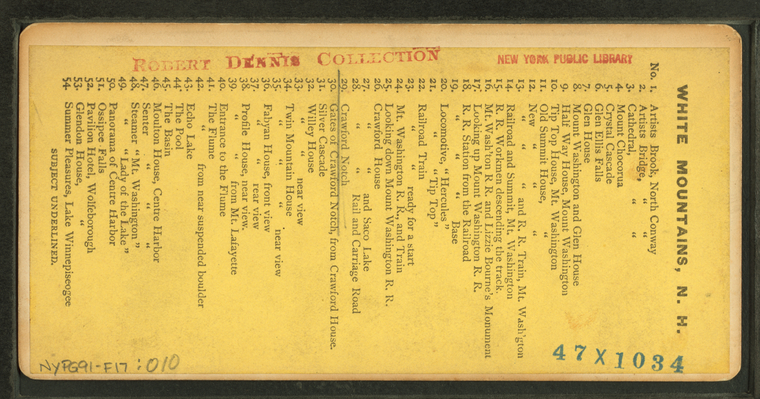 ROBERT DENNIS COLLECTION
NEW YORK PUBLIC LIBRARY
WHITE MOUNTAINS, N. H.
No. 1, Artists Brook, North Conway
2. Artists Bridge, " "
3. Cathedral, " "
4. Mount Chocorua
5. Crystal Cascade
6. Glen Ellis Falls
7. Glen House
8. Mount Washington and Glen House
9. Half Way House, Mount Washington
10. Tip Top House, Mt. Washington
11. Old Summit House, "
12. New " " "
13. " " " and R. R. Train, Mt. Wash'gton
14. Railroad and Summit, Mt. Washington
15. R. R. Workmen descending the track.
16. Mt. Wash'ton R. R. and Lizzie Bourne's Monument
17. Looking up Mount Washington R. R.
18. R. R. Station from the Railroad
19. " " " Base
20. Locomotive, "Hercules"
21. " "Tip Top"
22. Railroad Train
23. " " ready for a start
24. Mt. Washington R. R., and Train
25. Looking down Mount Washington R. R.
26. Crawford House
27. " " and Saco Lake
28. " " Rail and Carriage Road
29. Crawford Notch
30. Gates of Crawford Notch, from Crawford House.
31. Silver Cascade
32. Willey House
33. " " near view
34. Twin Mountain House
35. " " " near view
36. Fabyan House, front view
37. " " rear view
38. Profile House, near view.
39. " " from Mt. Lafayette
40. Entrance to the Flume
41. The Flume
42. " " from near suspended boulder
43. Echo Lake
44. The Pool
45. The Basin
46. Moulton House, Centre Harbor
47. Senter " " "
48. Steamer "Mt. Washington"
49. " "Lady of the Lake"
50. Panorama of Centre Harbor
51. Ossipee Falls
52. Pavilion Hotel, Wolfeborough
53. Glendon House, "
54. Summer Pleasures, Lake Winnepiseogee
SUBJECT UNDERLINED.
47X1034
NYPG91-F17:010